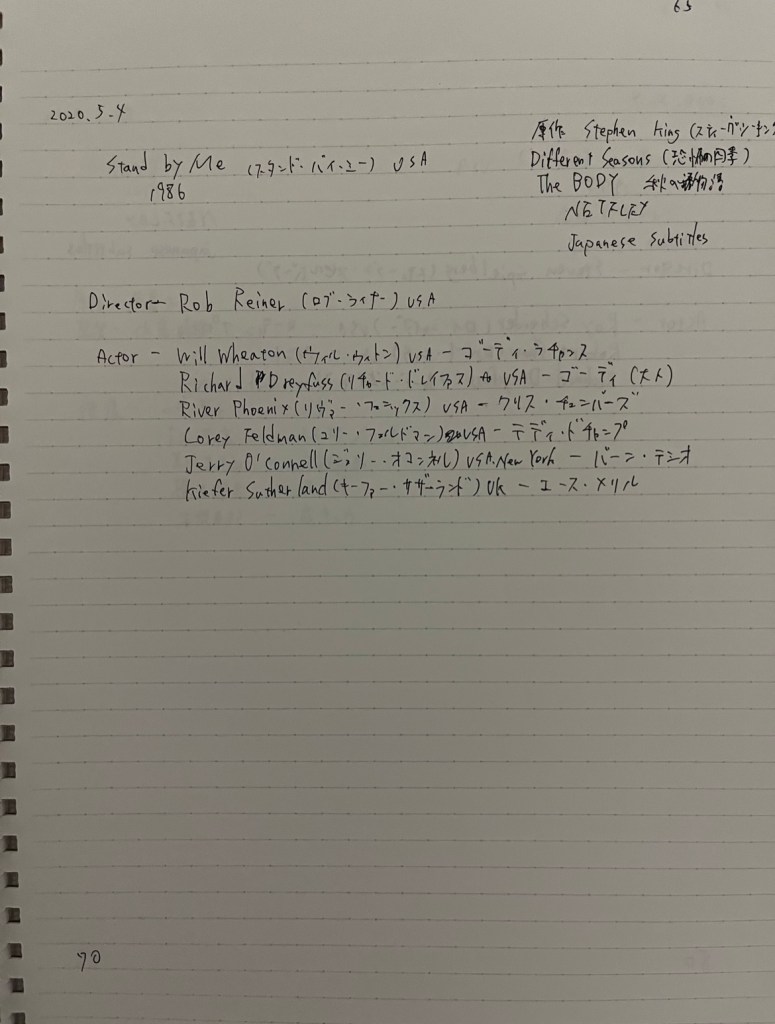 65
2020.5.4
原作 Stephen King (スティーヴン・キング
Stand by Me (スタンド・バイ・ミー) USA
Different Seasons (恐怖の四季)
1986
The BODY 秋の物語
NETFLEY
Japanese subtitles
Director - Rob Reiner (ロブ・ライナー) USA
Actor - Will Wheaton (ウィル・ウィトン) USA - ゴーディ・ラチャンス
Richard Dreyfuss (リチャード・ドレイファス) USA - ゴーディ (大人)
River Phoenix (リヴァー・フェニックス) USA - クリス・チェンバーズ
Corey Feldman (コリー・フェルドマン) USA - テディ・ドチャンプ
Jerry O'Connell (ジェリー・オコンネル) USA.New York - バーン・テシオ
Kiefer Sutherland (キーファー・サザーランド) UK - エース・メリル
70